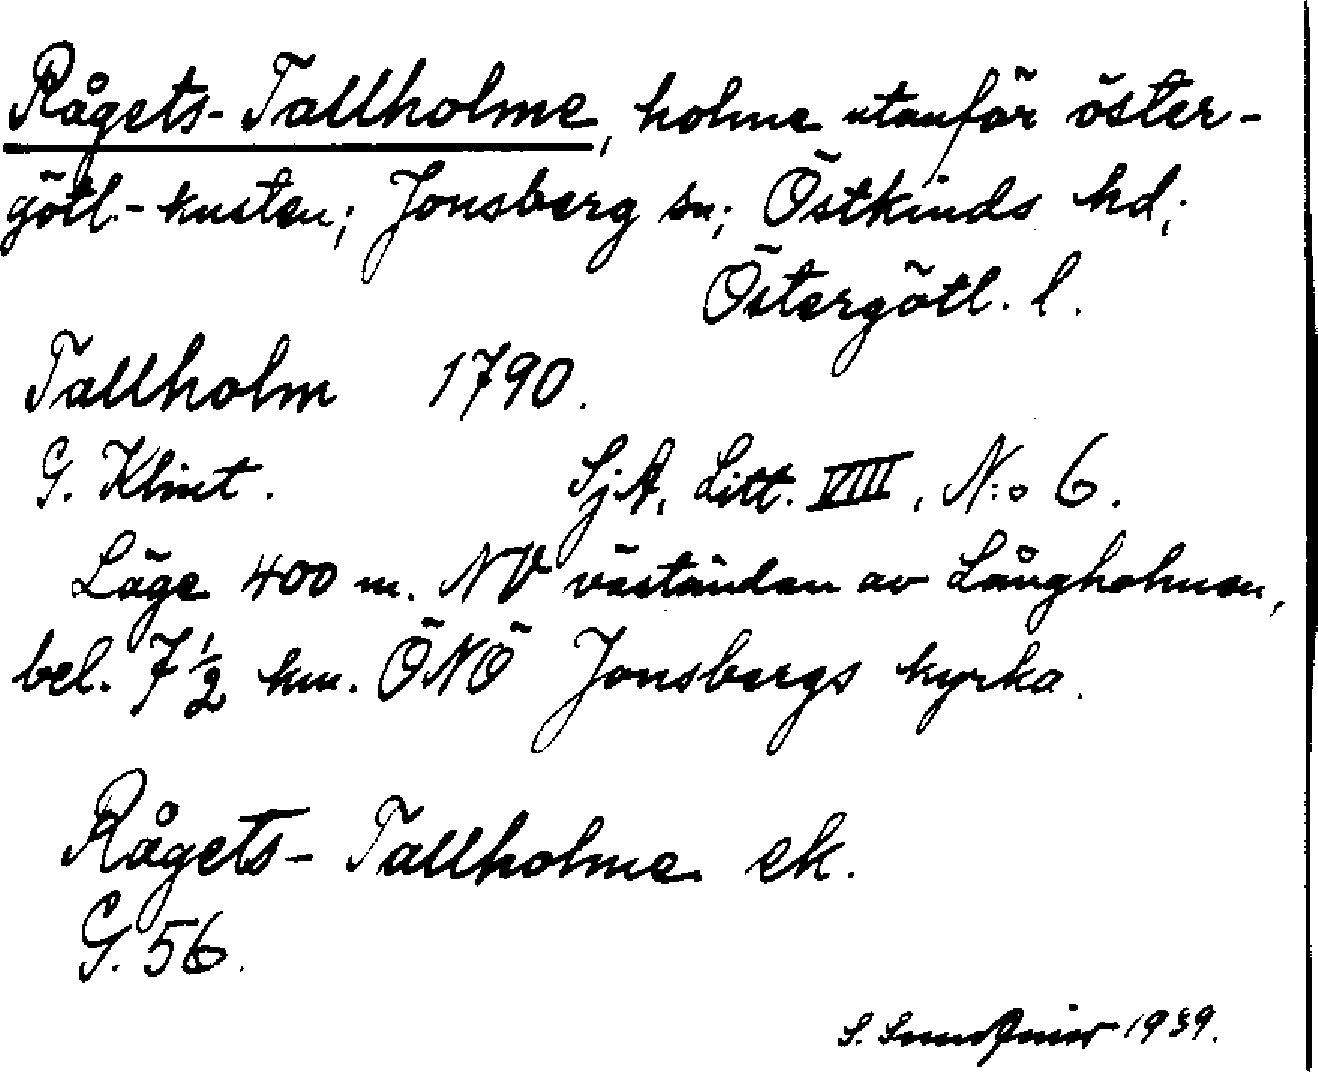 Rågets-Tallholme, holme utanför öster-
götl.-kusten; Jonsberg sn; Östkinds hd;
Östergötl. l.
Tallholm 1790.
G. Klint. SjA, Litt. VIII, N:o 6.
Läge 400 m. NV väständan av Långholmen,
bel. 7 1/2 km. ÖNÖ Jonsbergs kyrka.
Rågets-Tallholme ek.
G. 56.
S. 1939.